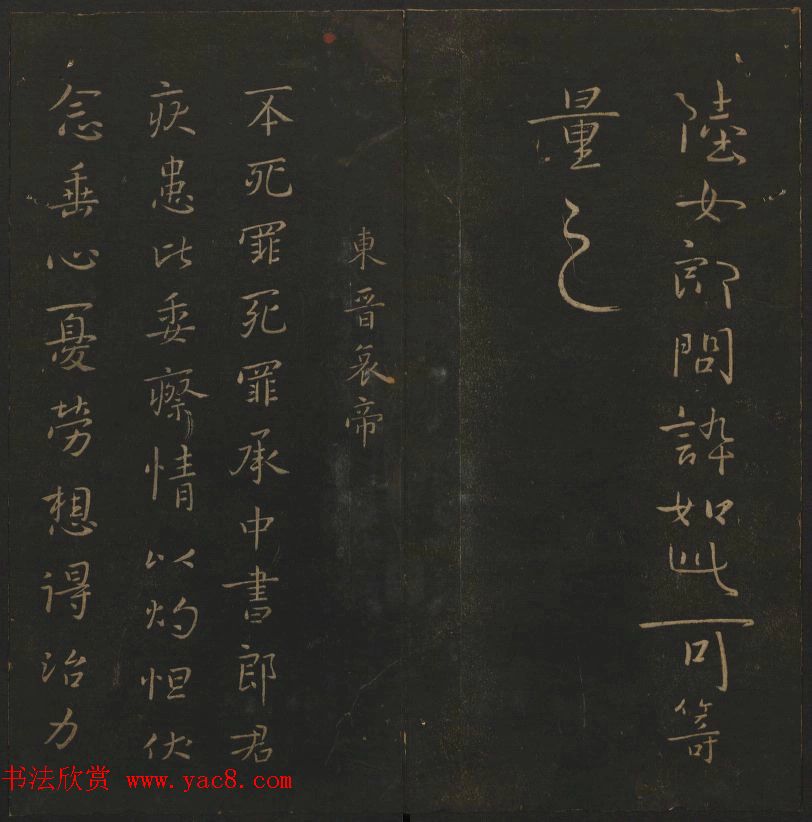 陸女郎問如此可籌
量之
東晉哀帝
丕死罪死罪承中書郎君
疾患比委瘵情以灼怛伏
念垂心憂勞想得治力
书法欣赏 www.yac8.com